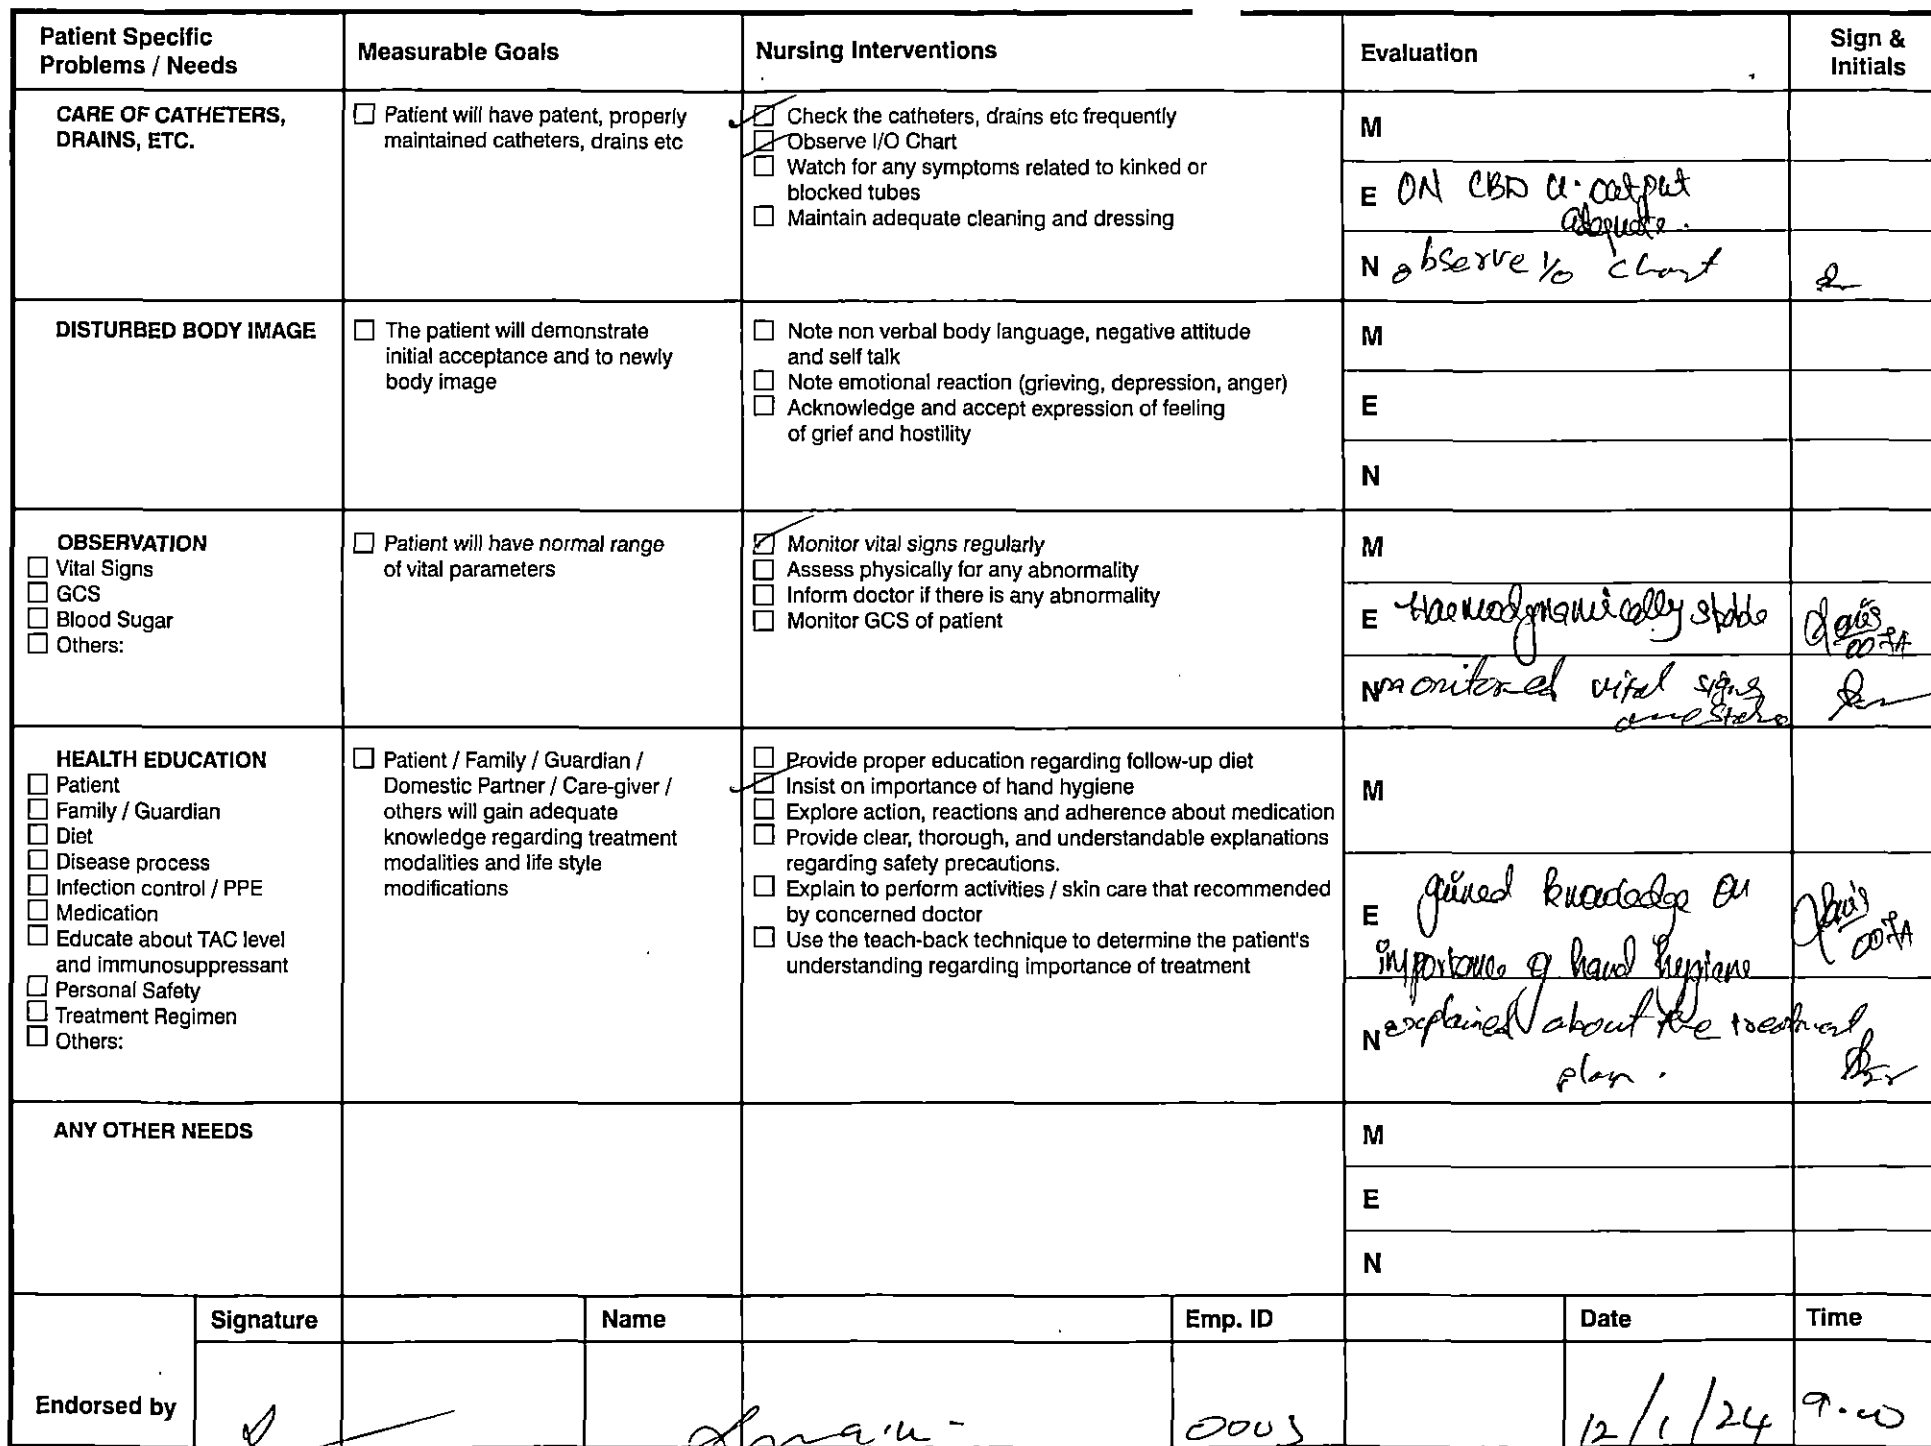 Patient Specific
Problems / Needs
Measurable Goals
Nursing Interventions
Evaluation
Sign &
Initials
CARE OF CATHETERS,
DRAINS, ETC.
☐ Patient will have patent, properly
maintained catheters, drains etc
☑ Check the catheters, drains etc frequently
☑ Observe I/O Chart
☐ Watch for any symptoms related to kinked or
blocked tubes
☐ Maintain adequate cleaning and dressing
M
E ON CBD U. output
adequate.
N observe I/o chart
DISTURBED BODY IMAGE
☐ The patient will demonstrate
initial acceptance and to newly
body image
☐ Note non verbal body language, negative attitude
and self talk
☐ Note emotional reaction (grieving, depression, anger)
☐ Acknowledge and accept expression of feeling
of grief and hostility
M
E
N
OBSERVATION
☐ Vital Signs
☐ GCS
☐ Blood Sugar
☐ Others:
☐ Patient will have normal range
of vital parameters
☑ Monitor vital signs regularly
☐ Assess physically for any abnormality
☐ Inform doctor if there is any abnormality
☐ Monitor GCS of patient
M
E Haemodynamically stable
N monitored vital signs
HEALTH EDUCATION
☐ Patient
☐ Family / Guardian
☐ Diet
☐ Disease process
☐ Infection control / PPE
☐ Medication
☐ Educate about TAC level
and immunosuppressant
☐ Personal Safety
☐ Treatment Regimen
☐ Others:
☐ Patient / Family / Guardian /
Domestic Partner / Care-giver /
others will gain adequate
knowledge regarding treatment
modalities and life style
modifications
☐ Provide proper education regarding follow-up diet
☑ Insist on importance of hand hygiene
☐ Explore action, reactions and adherence about medication
☐ Provide clear, thorough, and understandable explanations
regarding safety precautions.
☐ Explain to perform activities / skin care that recommended
by concerned doctor
☐ Use the teach-back technique to determine the patient's
understanding regarding importance of treatment
M
E gained knowledge on
importance of hand hygiene
N explained about the treatment
plan.
ANY OTHER NEEDS
M
E
N
Signature
Name
Emp. ID
Date
Time
Endorsed by
12/1/24